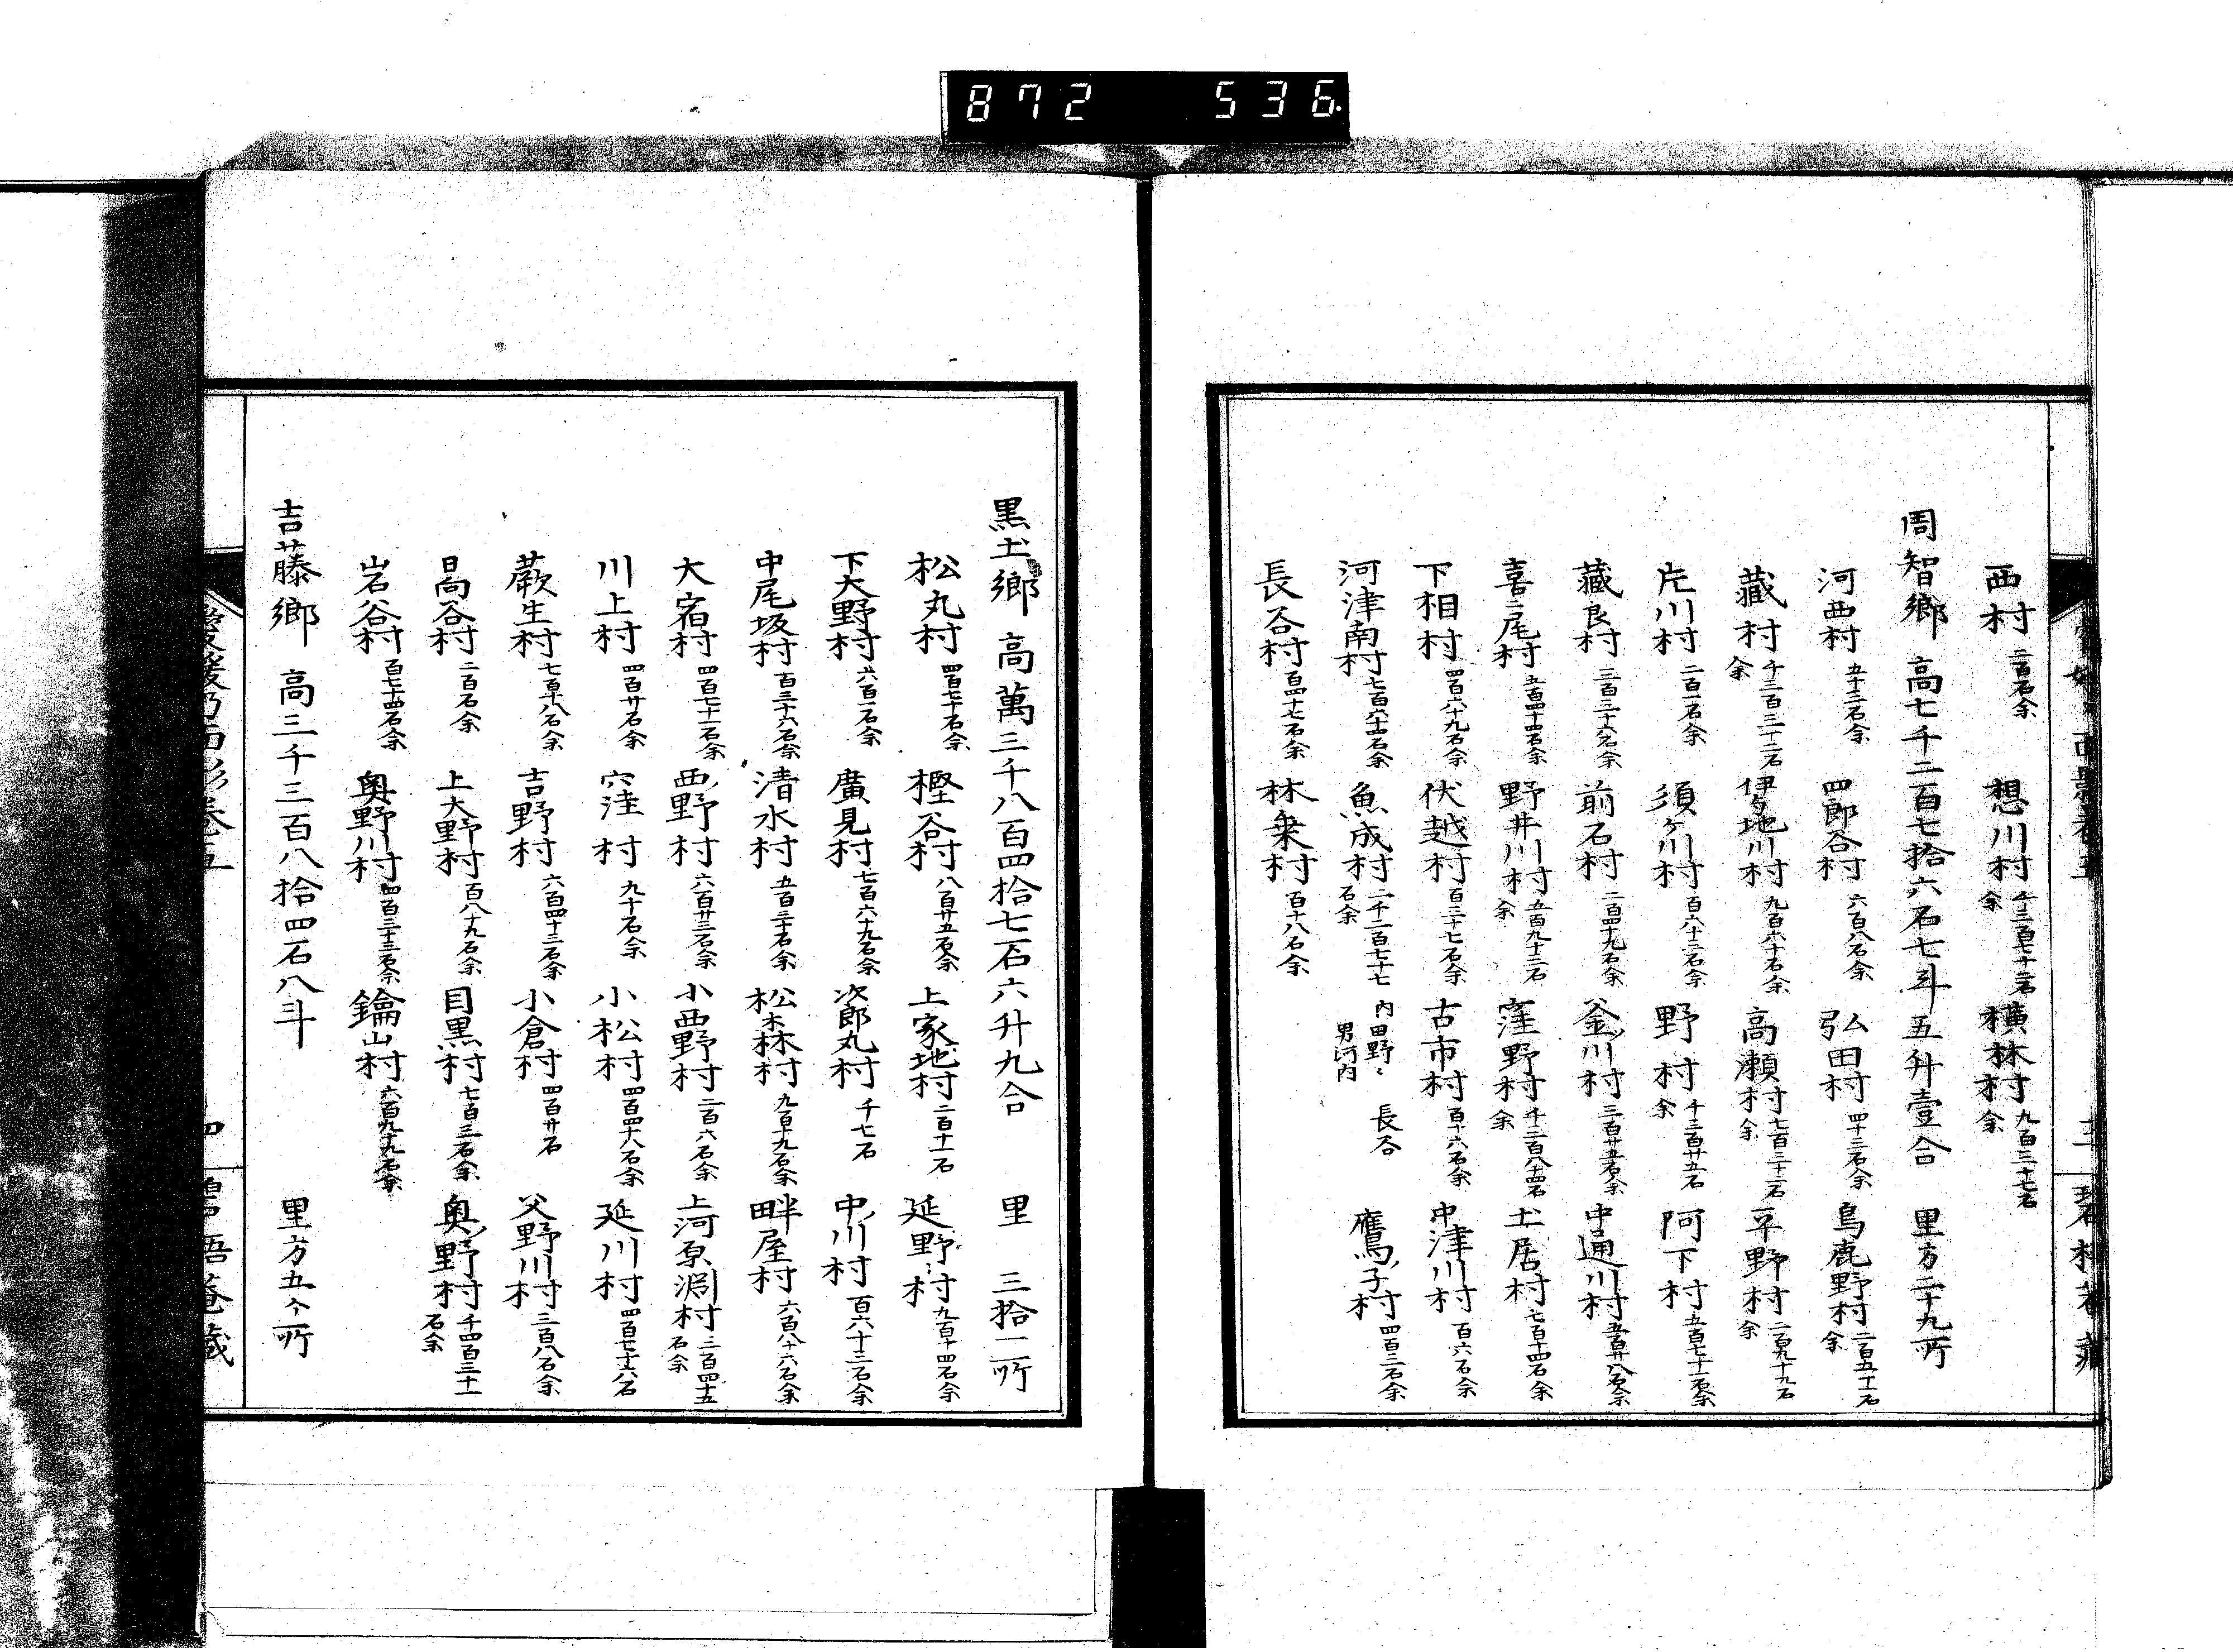 872 536
西村 二百石余 想川村 千三百七十二石余 横林村 九百三十七石余
周智郷 高七千二百七拾六石七斗五升壹合 里方二十九所
河西村 五十三石余 四郎谷村 六百八石余 弘田村 四十三石余 鳥鹿野村 二百五十一石余
藏村 千三百三十二石余 伊多地川村 九百六十石余 高瀬村 七百三十二石余 平野村 二百九十九石余
片川村 二百一石余 須ケ川村 百六十二石余 野村 千三百廿五石余 阿下村 五百七十二石余
藏良村 三百三十六石余 前石村 二百四十九石余 釜川村 三百廿五石余 中通川村 五百廿八石余
喜二尾村 五百四十四石余 野井川村 五百九十三石余 窪野村 千二百八十四石余 土居村 七百十四石余
下相村 四百六十九石余 伏越村 百三十七石余 古市村 百十六石余 中津川村 百六石余
河津南村 七百六十四石余 魚成村 二千二百七十七石余 内田野々 長谷 男河内 鷹子村 四百三石余
長谷村 百四十七石余 林乗村 百十八石余
黒土郷 高萬三千八百四拾七石六升九合 里 三拾二所
松丸村 四百七十石余 樫谷村 八百廿五石余 上家地村 二百十一石 延野々村 九百十四石余
下大野村 六百一石余 廣見村 七百六十九石余 次郎丸村 千七石 中ノ川村 百六十三石余
中尾坂村 百三十六石余 清水村 五百三十石余 松森村 九百十九石余 畔屋村 六百八十六石余
大宿村 四百七十一石余 西ノ野村 六百廿三石余 小西野村 二百六石余 上河原淵村 二百四十五石余
川上村 四百廿石余 窪村 九十石余 小松村 四百四十八石余 延川村 四百七十六石
蕨生村 七百十八石余 吉野村 六百四十三石余 小倉村 四百廿石 父野川村 三百八石余
日向谷村 二百石余 上大野村 百八十九石余 目黒村 七百三石余 奥ノ野村 千四百三十一石余
岩谷村 百七十四石余 奥野川村 四百三十三石余 鑰山村 六百九十九石余
吉藤郷 高三千三百八拾四石八斗 里方五ヶ所